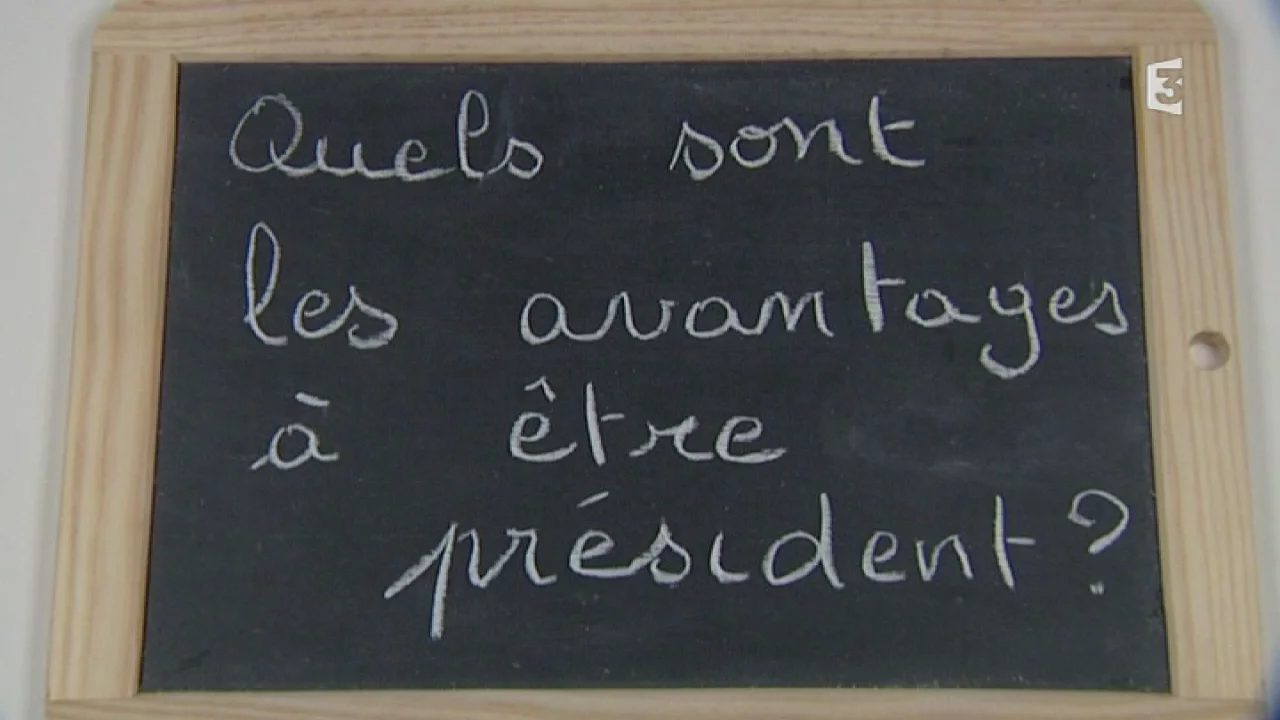 Quels sont
les avantages
à être
président ?
3